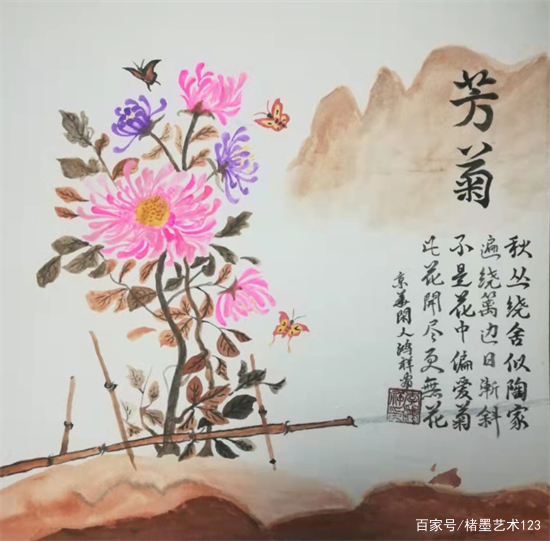 芳菊
秋丛绕舍似陶家
遍绕篱边日渐斜
不是花中偏爱菊
此花開尽更無花
京華閑人鸿祥書
百家号/楮墨艺术123